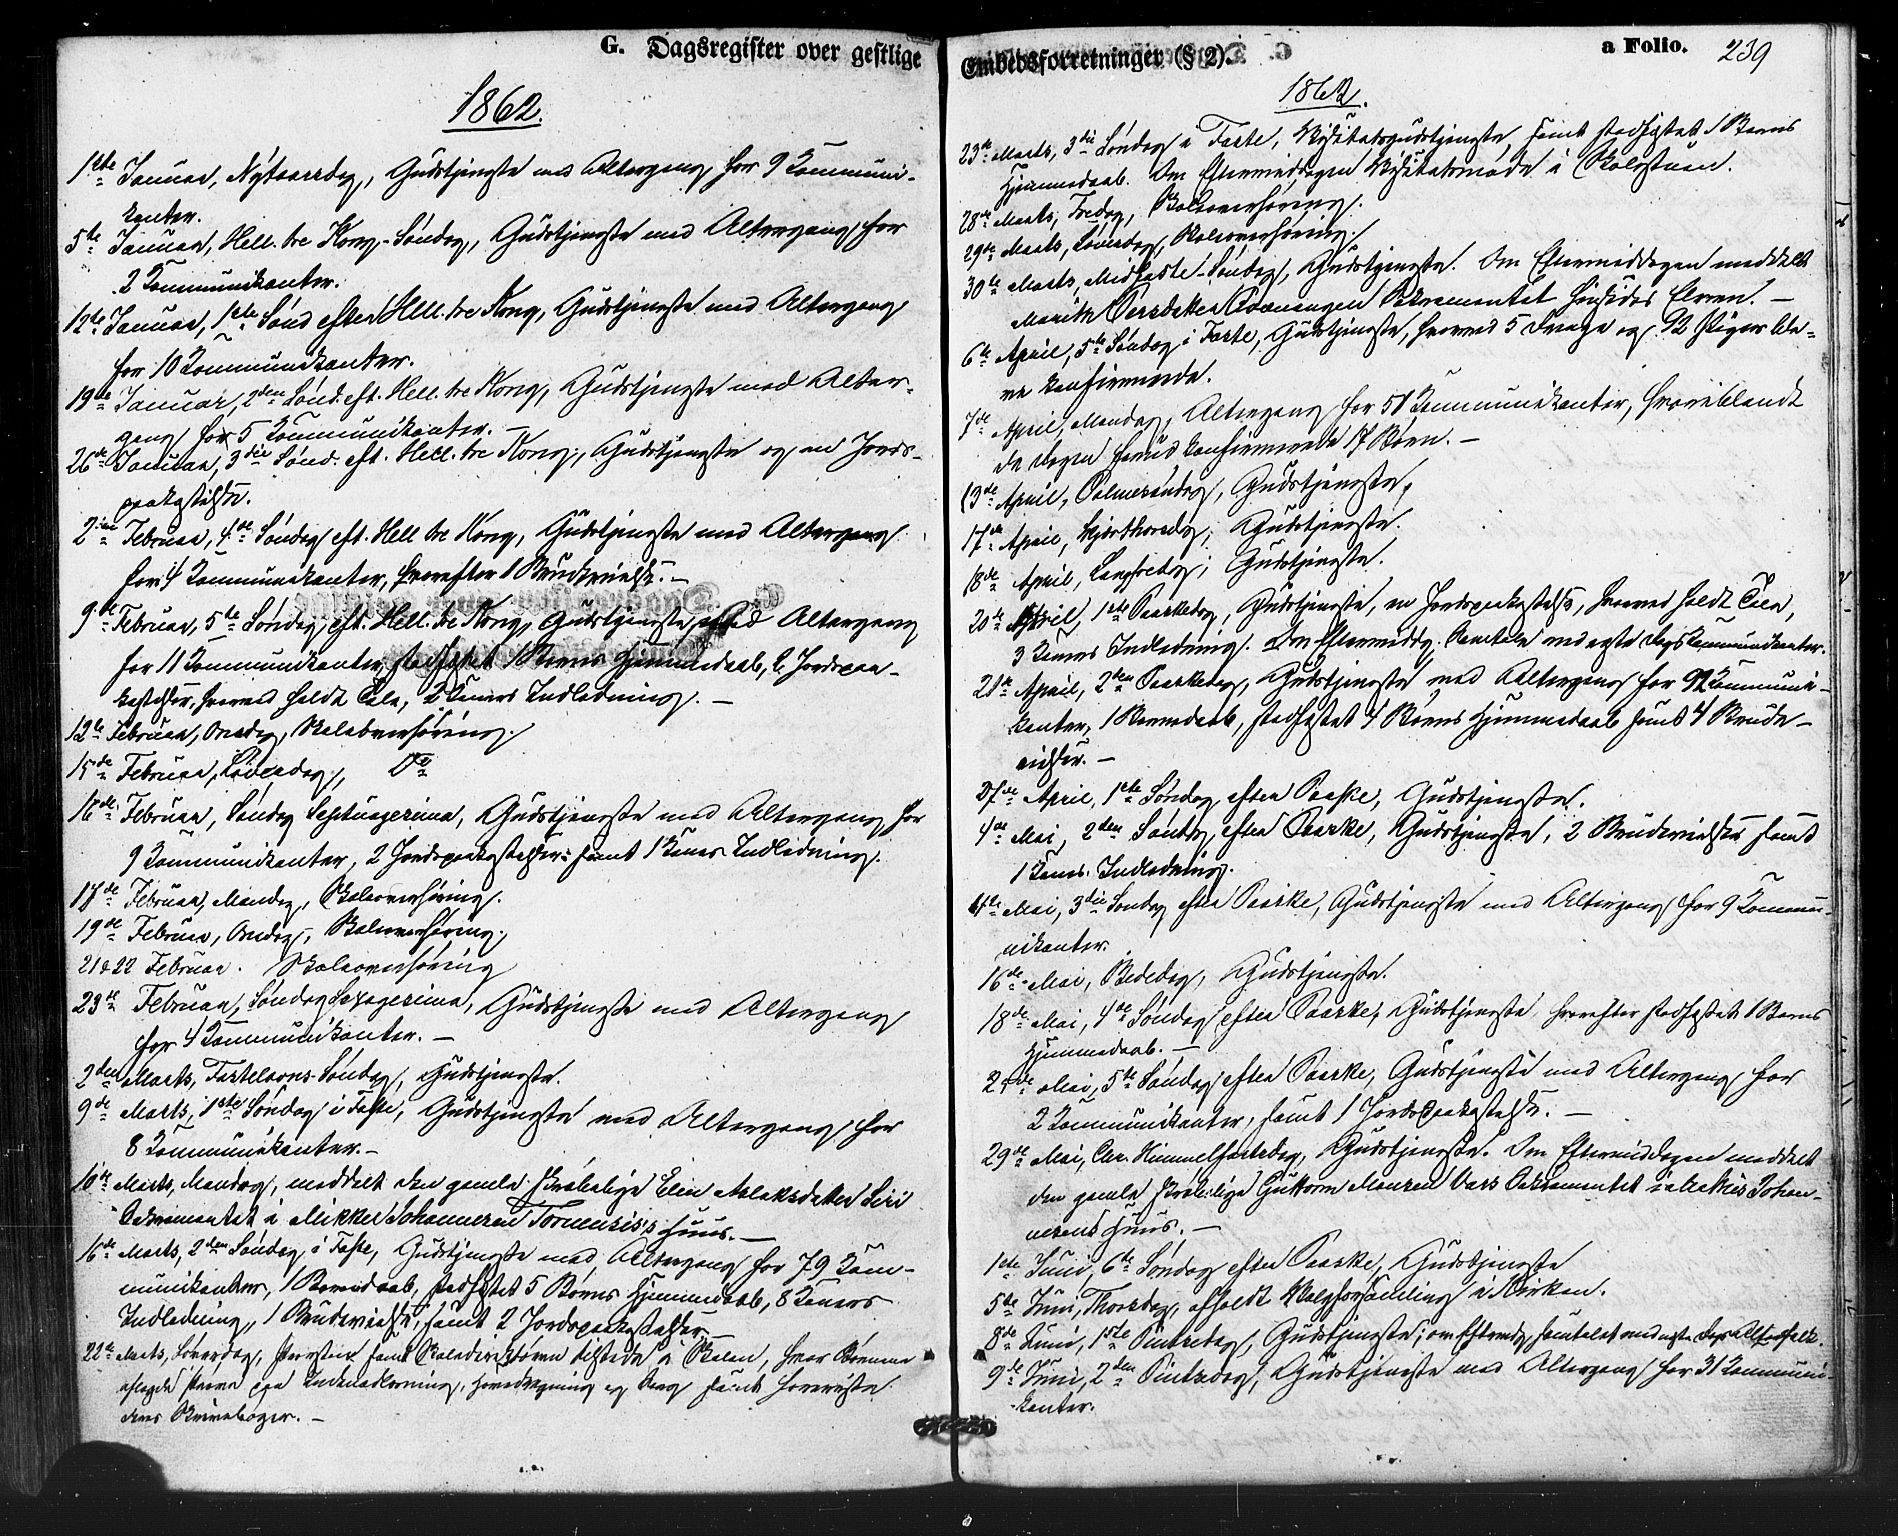 G. Dagsregister over gestlige
1862.
1ste Januar, Nytaarsdag, Gudstjeneste med Altergang for 9 Kommuni-
kanter.
5te Januar, Hell. tre Kong.-Søndag, Gudstjeneste med Altergang for
2 Kommunikanter.
12te Januar, 1ste Sønd efter Hell. tre Kong, Gudstjeneste med Altergang
for 10 Kommunikanter.
19de Januar, 2den Sønd. eft. Hell. tre Kong, Gudstjeneste med Alter-
gang for 5 Kommunikanter. –
26de Januar, 3die Sønd. eft. Hell. tre Kong., Gudstjeneste og en Jords-
paakastelse.
2den Februar, 4de Søndag eft. Hell tre Kong, Gudstjeneste med Altergang
for 4 Kommunikanter, hvorefter 1 Brudevielse. –
9de Februar, 5te Søndag eft. Hell. tre Kong, Gudstjeneste med Altergang
for 11 Kommunikanter, stadfæstet 1 Barns Hjemmedaab, Jordspaa-
kastelser, hvorved holdt Tale, 2 Koners Indledning. –
12te Februar, Onsdag, Skoleoverhøring.
15de Februar, Løverdag, Do
16de Februar, Søndag Septuagesima, Gudstjeneste med Altergang for
9 Kommunikanter, 2 Jordspaakastelser samt 1 Kones Indledning.
17de Februar, Mandag, Skoleoverhøring.
19de Februar, Onsdag, Skoleoverhøring.
21 & 22 Februar. Skoleoverhøring
23de Februar, Søndag Sexagesima, Gudstjeneste med Altergang
for 4 Kommunikanter. –
2den Marts, Fastelavns-Søndag, Gudstjeneste.
9de Marts, 1ste Søndag i Faste, Gudstjeneste med Altergang for
8 Kommunikanter. –
10de Marts, Mandag, meddelt den gamle skrøbelige Elen Aslaksdatter Siri
Sakramentet i Mikkel Johannesen Tornensis's Huus. –
16de Marts, 2den Søndag i Faste, Gudstjeneste med Altergang for 79 Kom-
munikanter, 1 Barnedaab, stadfæstet 5 Børns Hjemmedaab, 8 Koners
Indledning, 1 Brudevielse, samt 2 Jordspaakastelser. –
22de Marts, Løverdag, Provsten samt Skoledirektøren tilstede i Skolen, hvor Børnene
aflagde Prøve paa Indenadlæsning, Hovedregning og Sang samt foreviste
deres Skrivebøger. –
Embedsforretninger (§ 2).
a Folio. 239
1862.
23de Marts, 3die Søndag i Faste, Visitatsgudstjeneste, samt stadfæstet 1 Barns
Hjemmedaab. Om Eftermiddagen Visitatsmøde i Skolestuen.
28de Marts, Fredag, Skoleoverhøring.
29de Marts, Løverdag, Skoleoverhøring.
30te Marts, Midfaste-Søndag, Gudstjeneste. Om Eftermiddagen meddelt
Marith Persdatter Sakramentet hinsides Elven. –
6te April, 5te Søndag i Faste, Gudstjeneste, hvorved 5 Drenge og 12 Piger ble-
ve konfirmerede.
7de April, Mandag, Altergang for 51 Kommunikanter, hvoriblandt
de Dagen forud konfirmerede 17 Børn. –
13de April, Palmesøndag, Gudstjeneste.
17de April, Skjærthorsdag, Gudstjeneste.
18de April, Langfredag, Gudstjeneste.
20de April, 1ste Paaskedag, Gudstjeneste, en Jordspaakastelse, hvorved holdt Tale,
3 Koners Indledning. Om Eftermiddag. Samtale med næste Dags Kommunikanter.
21de April, 2den Paaskedag, Gudstjeneste med Altergang for 92 Kommuni-
kanter, 1 Barnedaab, stadfæstet 4 Børns Hjemmedaab samt 4 Brude-
vielser. –
27de April, 1ste Søndag efter Paaske, Gudstjeneste.
4de Mai, 2den Søndag efter Paaske, Gudstjeneste, 2 Brudevielser samt
1 Kones Indledning.
Mai, 3die Søndag efter Paaske, Gudstjeneste med Altergang for 9 Kommu-
nikanter.
16de Mai, Bededag, Gudstjeneste.
18de Mai, 4de Søndag efter Paaske, Gudstjeneste, hvorefter stadfæstet 1 Barns
Hjemmedaab. –
25de Mai, 5te Søndag efter Paaske, Gudstjeneste med Altergang for
2 Kommunikanter, samt 1 Jordspaakastelse. –
29de Mai, Chr. Himmelfartsdag, Gudstjeneste. Om Eftermiddagen meddelt
den gamle skrøbelige Guttorm Monsen Vars Sakramentet i Johan-
nesens Huus. –
1ste Juni, 6te Søndag efter Paaske, Gudstjeneste
5te Juni, Thorsdag, afholdt Valgforsamling i Kirken.
8de Juni, 1ste Pintsedag, Gudstjeneste; om Efterm. Samtale med næste Dags Altersfolk.
9de Juni, 2den Pintsedag, Gudstjeneste med Altergang for 31 Kommuni-
kanter.